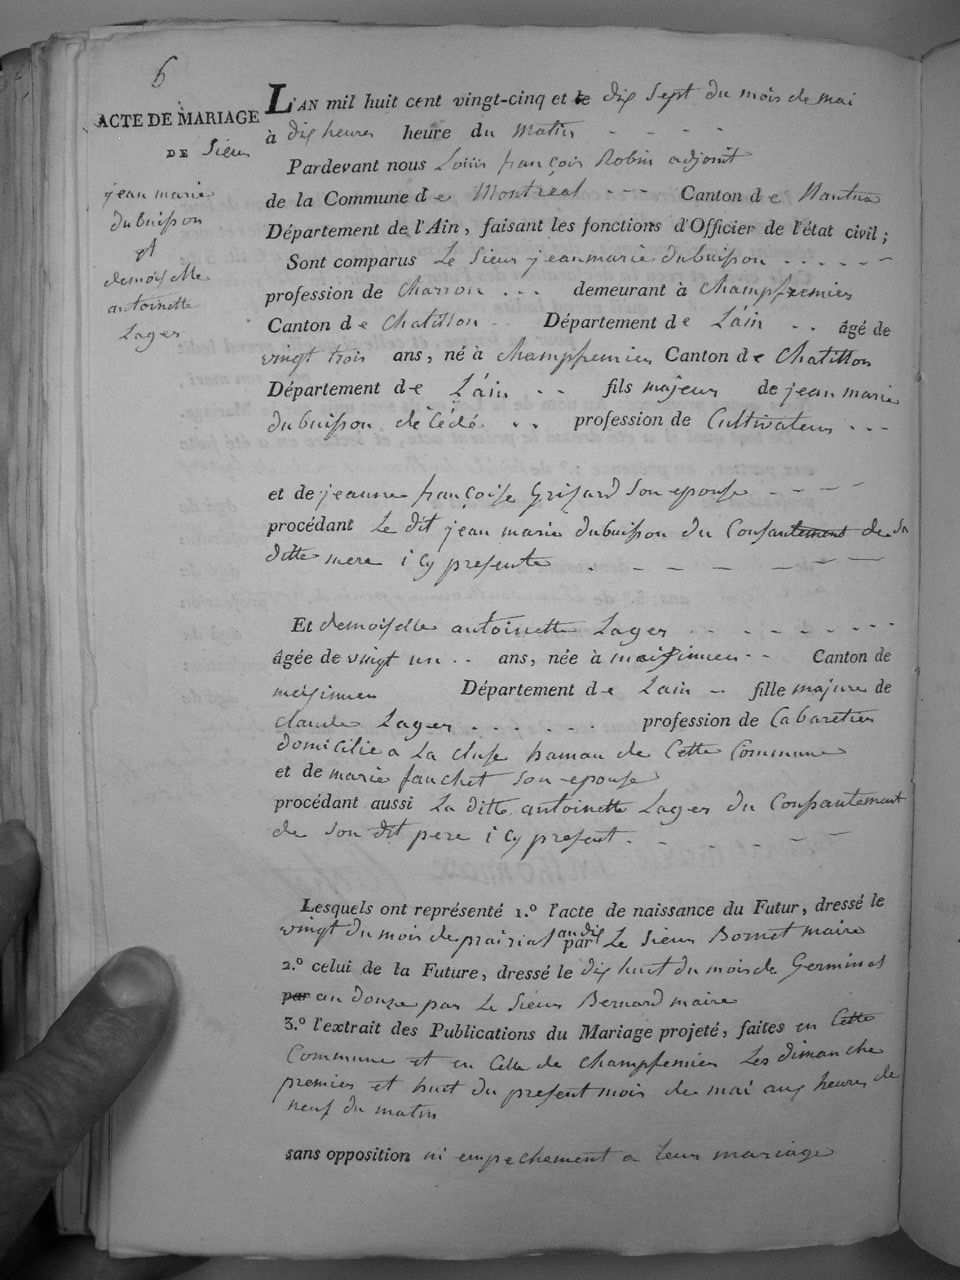 6
ACTE DE MARIAGE
DE Sieur
jean marie
dubuisson
et
demoiselle
antoinette
Lager
L'AN mil huit cent vingt-cinq et le dix Sept du mois de mai
à dix heures heure du matin - - - -
Pardevant nous Louis françois Robin adjoint
de la Commune de Montréal - - - Canton de Nantua
Département de l'Ain, faisant les fonctions d'Officier de l'état civil;
Sont comparus Le Sieur jean marie dubuisson - - - - - -
profession de Charron - - - demeurant à Champfremier
Canton de Chatillon - Département de L'ain - - âgé de
vingt trois ans, né à Champfremier Canton de Chatillon
Département de L'ain - - fils majeur de jean marie
dubuisson décédé - - profession de Cultivateur - - -
et de jeanne françoise Grisard Son epouse - - - -
procédant Le dit jean marie dubuisson du Consantement de Sa
ditte mere i Cy presente - - - - - -
Et demoiselle antoinette Lager - - - - - - - -
âgée de vingt un - - ans, née à maisimieu - - Canton de
meximieu Département de Lain - fille majeure de
claude Lager - - - - - - profession de Cabaretier
domicilié a La Cluse hamau de Cette Commune
et de marie fauchet Son epouse
procédant aussi La ditte antoinette Lager du Consantemant
de Son dit pere i Cy present - - - -
Lesquels ont représenté 1.º l'acte de naissance du Futur, dressé le
vingt du mois de prairial an dix par Le Sieur Bornet maire
2.º celui de la Future, dressé le dix huit du mois de Germinal
par an douze par Le Sieur Bernard maire
3.º l'extrait des Publications du Mariage projeté, faites en Cette
Commune et en Celle de Champfremier Les dimanche
premier et huit du present mois de mai aux heures de
neuf du matin
sans opposition ni empechement a leur mariage